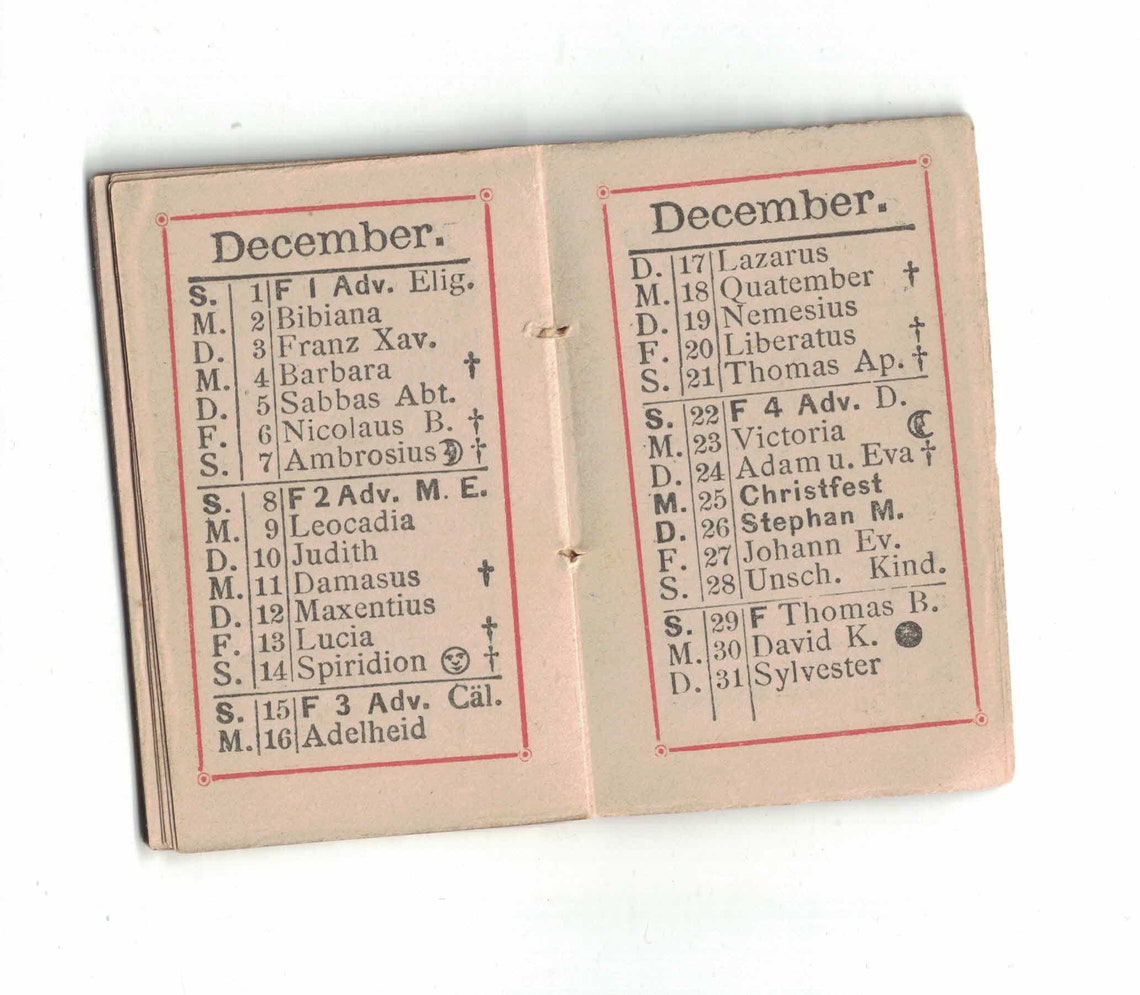 December.
S. 1 F 1 Adv. Elig.
M. 2 Bibiana
D. 3 Franz Xav.
M. 4 Barbara †
D. 5 Sabbas Abt.
F. 6 Nicolaus B. †
S. 7 Ambrosius ☽ †
S. 8 F 2 Adv. M. E.
M. 9 Leocadia
D. 10 Judith
M. 11 Damasus †
D. 12 Maxentius
F. 13 Lucia †
S. 14 Spiridion †
S. 15 F 3 Adv. Cäl.
M. 16 Adelheid
December.
D. 17 Lazarus
M. 18 Quatember †
D. 19 Nemesius
F. 20 Liberatus †
S. 21 Thomas Ap. †
S. 22 F 4 Adv. D.
M. 23 Victoria ☾
D. 24 Adam u. Eva †
M. 25 Christfest
D. 26 Stephan M.
F. 27 Johann Ev.
S. 28 Unsch. Kind.
S. 29 F Thomas B.
M. 30 David K. ●
D. 31 Sylvester